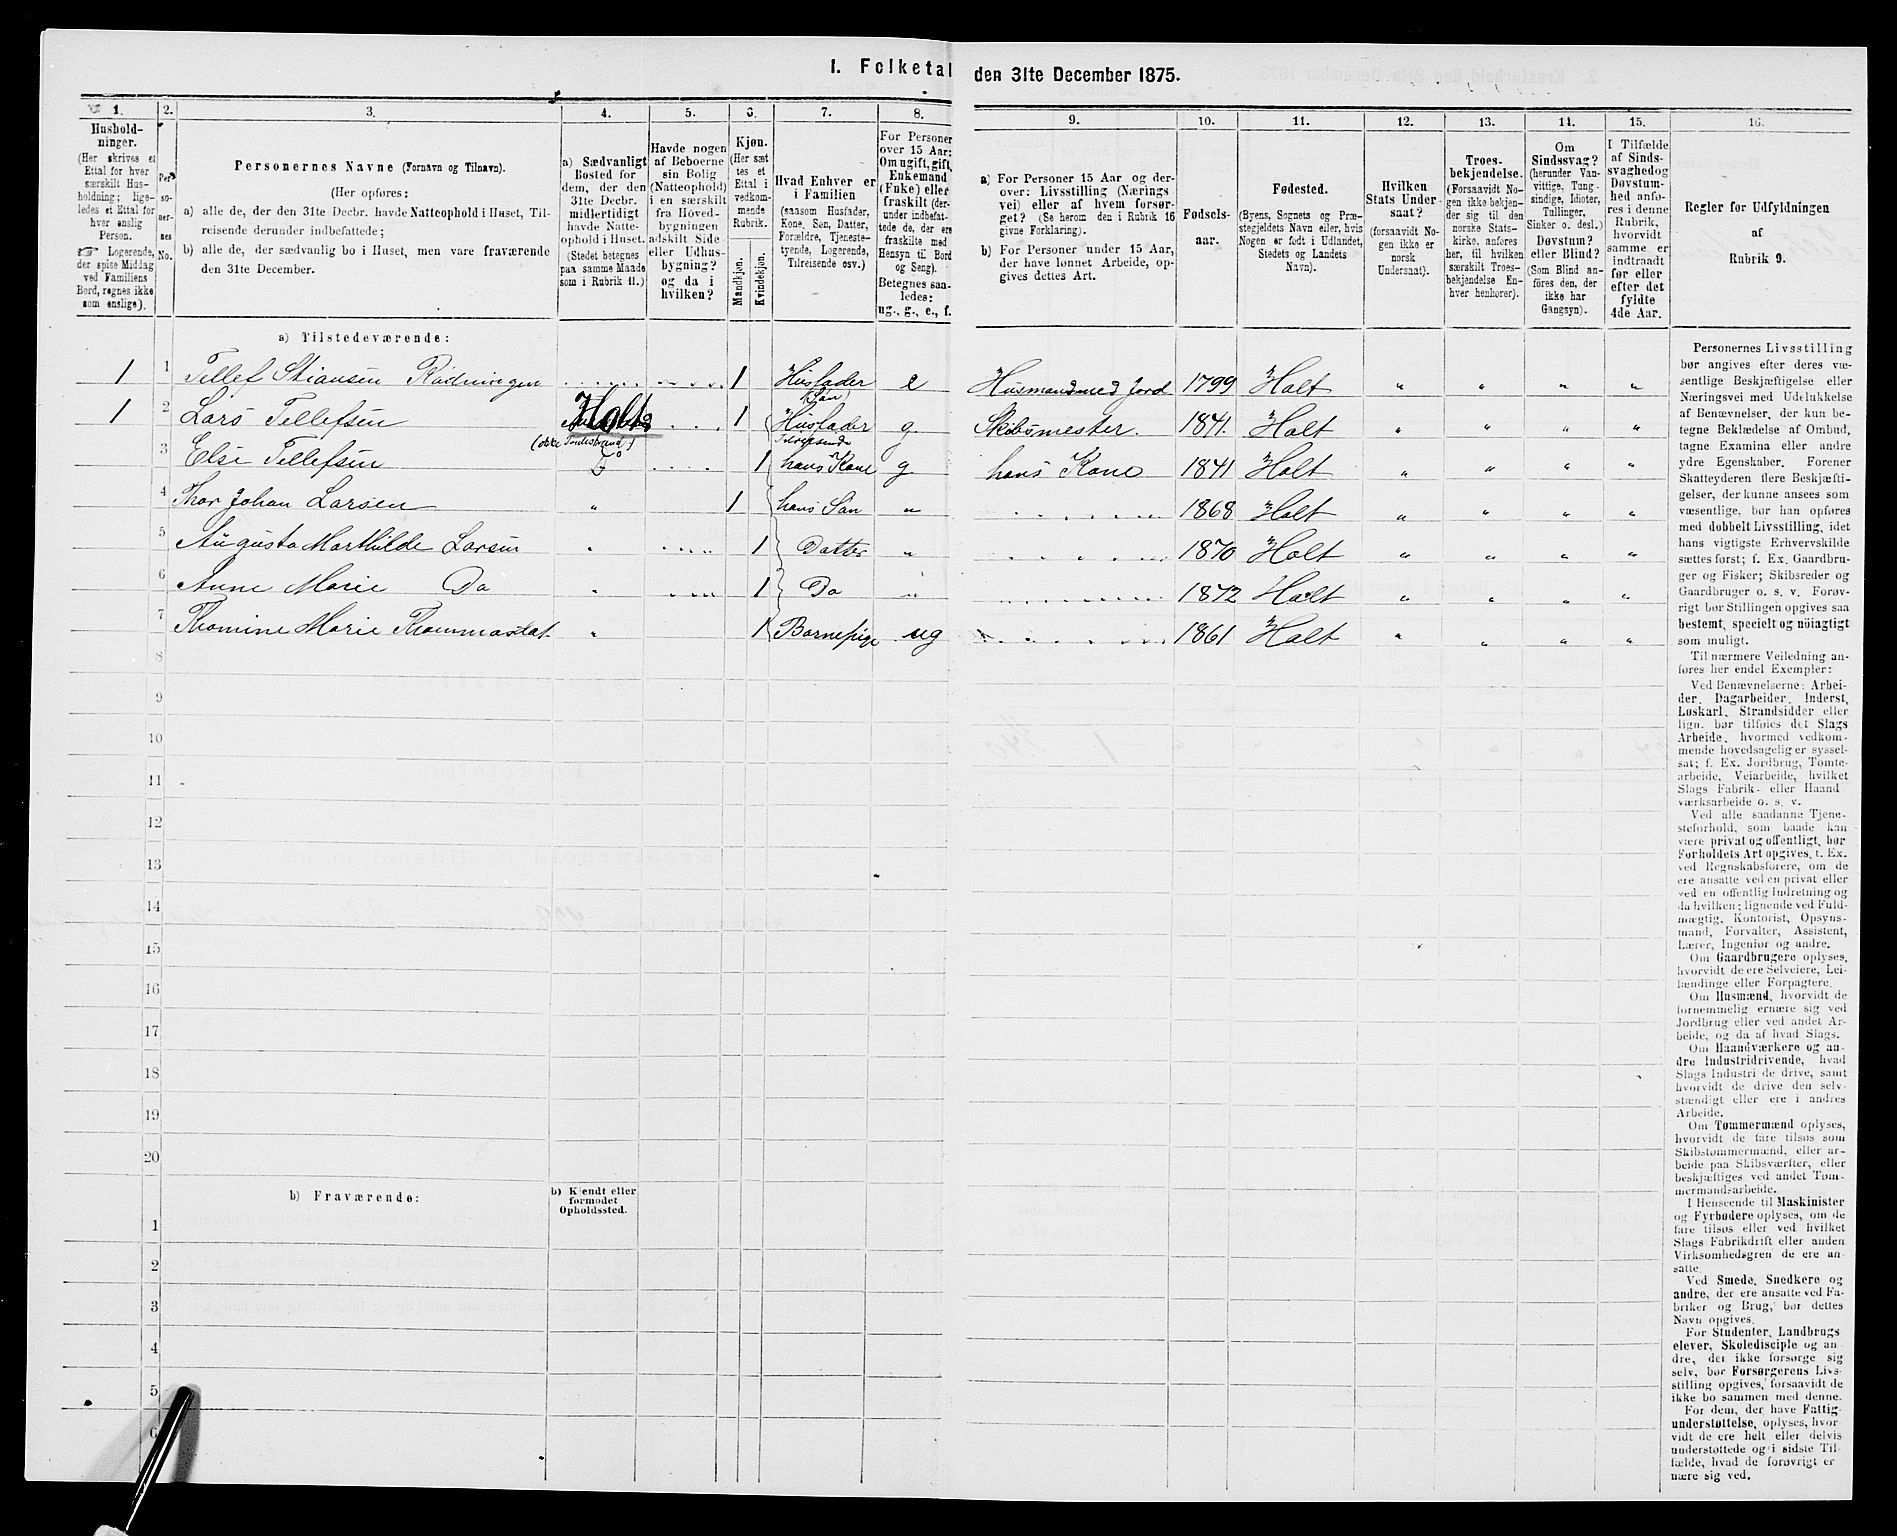 1. Folketal den 31te December 1875.
1. 2. 3. 4. 5. 6. 7. 8. 9. 10. 11. 12. 13. 14. 15. 16.
Hushold-
ninger.
(Her skrives et
Ettal for hver
særskilt Hus-
holdning; lige-
ledes et Ettal for
hver enslig
Person.
☞ Logerende,
der spise Middag
ved Familiens
Bord, regnes ikke
som enslige).
Per-
so-
ner-
nes
No.
Personernes Navne (Fornavn og Tilnavn).
(Her opføres:
a) alle de, der den 31te Decbr. havde Natteophold i Huset, Til-
reisende derunder indbefattede;
b) alle de, der sædvanlig bo i Huset, men vare fraværende
den 31te December.
a) Sædvanligt
Bosted for
dem, der den
31te Decbr.
midlertidigt
havde Natte-
ophold i Huset.
(Stedet betegnes
paa samme Maade
som i Rubrik 11.)
Havde nogen
af Beboerne
sin Bolig
(Natteophold)
i en særskilt
fra Hoved-
bygningen
adskilt Side-
eller Udhus-
bygning?
og da i
hvilken?
Kjøn.
(Her sæt-
tes et
Ettal i
vedkom-
mende
Rubrik.
Mandkjøn.
Kvindekjøn.
Hvad Enhver er
i Familien
(saasom Husfader,
Kone, Søn, Datter,
Forældre, Tjeneste-
tyende, Logerende,
Tilreisende osv.)
For Personer
over 15 Aar:
Om ugift, gift,
Enkemand
(Enke) eller
fraskilt (der-
under indbefat-
tede de, der ere
fraskilte med
Hensyn til Bord
og Seng).
Betegnes saa-
ledes:
ug., g., e., f.
a) For Personer 15 Aar og der-
over: Livsstilling (Nærings-
vei) eller af hvem forsør-
get? (Se herom den i Rubrik 16
givne Forklaring).
b) For Personer under 15 Aar,
der have lønnet Arbeide, op-
gives dettes Art.
Fødsels-
aar.
Fødested.
(Byens, Sognets og Præ-
stegjeldets Navn eller, hvis
Nogen er født i Udlandet,
Stedets og Landets
Navn).
Hvilken
Stats Under-
saat?
(forsaavidt No-
gen ikke er
norsk
Undersaat).
Troes-
bekjendelse.
(Forsaavidt No-
gen ikke bekjen-
der sig til den
norske Stats-
kirke, anføres
her, til hvilken
særskilt Troes-
bekjendelse En-
hver henhører).
Om
Sindssvag?
(herunder Van-
vittige, Tung-
sindige, Idioter,
Tullinger,
Sinker o. desl.)
Døvstum?
eller Blind?
(Som Blind an-
føres den, der
ikke har
Gangsyn).
I Tilfælde
af Sinds-
svaghed og
Døvstum-
hed anfø-
res i denne
Rubrik,
hvorvidt
samme er
indtraadt
før eller
efter det
fyldte
4de Aar.
Regler for Udfyldningen
af
Rubrik 9.
a) Tilstedeværende:
1 1 Tellef Stiansen Rødningen 1 Husfader e Husmand med Jord 1799 Holt " " " "
(Søn)
1 2 Lars Tellefsen Holt 1 Husfader g. Skibsmester. 1841. Holt " " " "
Tilreisende
3 Else Tellefsen Do 1 hans Kone g hans Kone 1841 Holt " " " "
4 Thor Johan Larsen " 1 hans Søn " 1868 Holt " " " "
5 Augusta Marthilde Larsen " 1 Datter " 1870 Holt " " " "
6 Anne Marie Do " 1 Do " 1872 Holt " " " "
7 Thomine Marie Thommasdat. " 1 Barnepige ug 1861 Holt " " " "
8
9
10
11
12
13
14
15
16
17
18
19
20
b) Fraværende:
b) Kjendt eller
formodet
Opholdssted.
1
2
3
4
5
6
Personernes Livsstilling
bør angives efter deres væ-
sentlige Beskjæftigelse eller
Næringsvei med Udelukkelse
af Benævnelser, der kun be-
tegne Beklædelse af Ombud,
tagne Examina eller andre
ydre Egenskaber. Forener
Skatteyderen flere Beskjæfti-
gelser, der kunne ansees som
væsentlige, bør han opføres
med dobbelt Livsstilling, idet
hans vigtigste Erhvervskilde
sættes først; f. Ex. Gaardbru-
ger og Fisker; Skibsreder og
Gaardbruger o. s. v. Forøv-
rigt bør Stillingen opgives saa
bestemt, specielt og nöiagtigt
som muligt.
Til nærmere Veiledning an-
føres her endel Exempler:
Ved Benævnelserne: Arbei-
der, Dagarbeider, Inderst,
Løskarl, Strandsidder eller
lign. bør tilføies det Slags
Arbeide, hvormed vedkom-
mende hovedsagelig er syssel-
sat; f. Ex. Jordbrug, Tomte-
arbeide, Veiarbeide, hvilket
Slags Fabrik- eller Haand-
værksarbeide o. s. v.
Ved alle saadanne Tjene-
steforhold, som baade kan
være privat og offentligt, bør
Forholdets Art opgives, t. Ex.
ved Regnskabsførere, om de
ere ansatte ved en privat eller
ved en offentlig Indretning og
da hvilken; lignende ved Fuld-
mægtig, Kontorist, Opsyns-
mand, Forvalter, Assistent,
Lærer, Ingeniør og andre.
Om Gaardbrugere oplyses,
hvorvidt de ere Selveiere, Lei-
lændinge eller Forpagtere.
Om Husmænd, hvorvidt de
fornemmelig ernære sig ved
Jordbrug eller ved andet Ar-
beide, og da af hvad Slags.
Om Haandværkere og an-
dre Industridrivende, hvad
Slags Industri de drive, samt
hvorvidt de drive den selv-
stændigt eller ere i andres
Arbeide.
Om Tømmermænd oplyses,
hvorvidt de fare tilsøs som
Skibstømmermænd, eller ar-
beide paa Skibsværfter, eller
beskjæftiges ved andet Tøm-
mermandsarbeide.
I Henseende til Maskinister
og Fyrbødere oplyses, om de
fare tilsøs eller ved hvilket
Slags Fabrikdrift eller anden
Virksomhedsgren de ere an-
satte.
Ved Smede, Snedkere og
andre, der ere ansatte ved Fa-
briker og Brug, bør dettes
Navn opgives.
For Studenter, Landbrugs-
elever, Skoledisciple og an-
dre, der ikke forsørge sig
selv, bør Forsørgerens Livs-
stilling opgives, forsaavidt de
ikke bo sammen med denne.
For dem, der have Fattig-
understøttelse, oplyses, hvor-
vidt de ere helt eller delvis
understøttede og i sidste Til-
fælde, hvad de forøvrigt er-
nære sig ved.